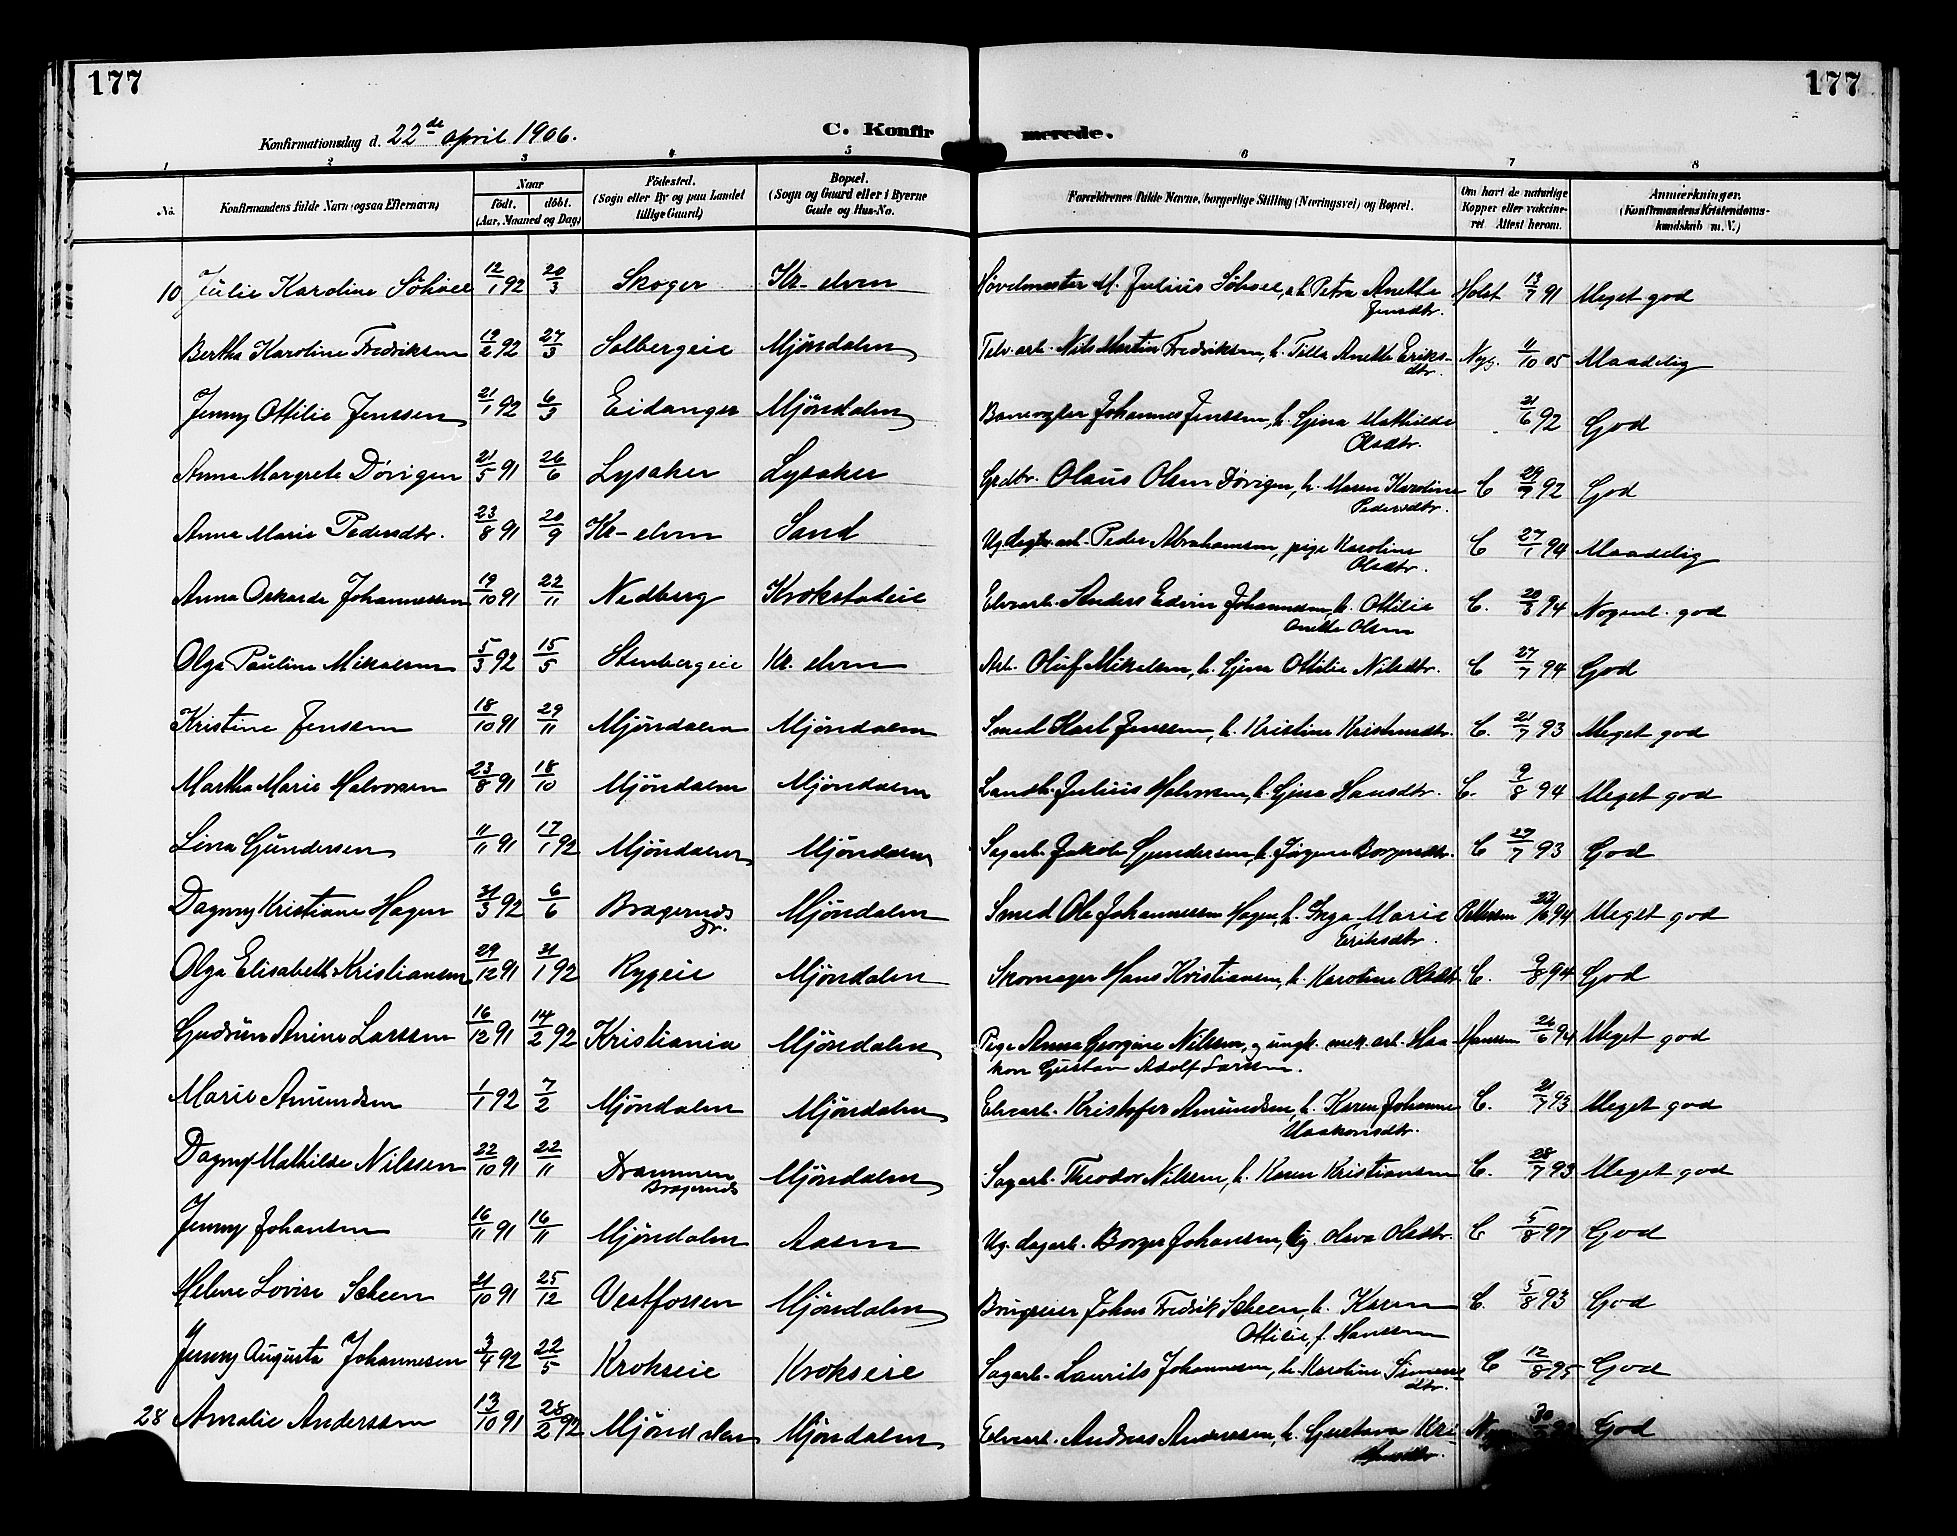 177
177
Konfirmationsdag d. 22de april 1906.
C. Konfirmerede.
1 2 3 4 5 6 7 8
No.
Konfirmandens fulde Navn (ogsaa Efternavn)
Naar
født. døbt.
(Aar, Maaned og Dag)
Fødested.
(Sogn eller By og paa Landet
tillige Gaard)
Bopæl.
(Sogn og Gaard eller i Byerne
Gade og Hus-No.
Forældrenes fulde Navne, borgerlige Stilling (Næringsvei) og Bopæl.
Om havt de naturlige
Kopper eller vakcineret
Attest herom.
Anmærkninger.
(Konfirmandens Kristendomskundskab
m. V.)
10 Julie Karoline Söhoel 12/1 92 20/3 Skoger Kr-elven Hövelmester M. Julius Söhoel, h. Petra Anette Jensdtr. Holst 13/7 91 Meget god
Bertha Karoline Fredriksen 12/2 92 27/3 Solbergeie Mjöndalen Nils Martin Fredriksen, h. Anette Eriksdtr. Nyg. 11/10 05 Maadelig
Jenny Ottilie Jenssen 21/1 92 6/3 Eidanger Mjöndalen Banevogter Johannes Jenssen, h. Gina Mathilde Olsdtr. 21/6 92 God
Anna Margrete Dövigen 21/5 91 26/6 Lysaker Lysaker Grdbr. Olaus Olsen Dövigen, h. Maren Karoline Pedersdtr. C 29/7 92 God
Anna Marie Pedersdtr. 23/8 91 20/9 Kr-elven Sand Ug. dagarb. Peder Abrahamsen, pige Karoline Olsdtr. C 27/1 94 Maadelig
Anna Oskarda Johannessen 19/10 91 22/11 Nedberg Krokstadeie Elvearb. Anders Edvin Johannesen, h. Ottilie Anette Olsen C. 20/8 94 Nogenl. god
Olga Pauline Mikaelsen 5/3 92 15/5 Stenbergeie Kr. elven Arb. Oluf Mikelsen, h. Gina Ottilie Nilsdtr. C 27/7 94 God
Kristine Jenssen 18/10 91 29/11 Mjöndalen Mjöndalen Smed Karl Jenssen, h. Kristine Kristensdtr. C. 21/7 93 Meget god
Martha Marie Halvorsen 23/8 91 18/10 Mjöndalen Mjöndalen Landh. Julius Halvorsen, h. Gina Hansdtr. C. 9/8 94 Meget god
Lina Gundersen 11/11 91 17/1 92 Mjöndalen Mjöndalen Sagarb. Jakob Gundersen, h. Jörgine Borgersdtr. C 29/7 93 God
Dagny Kristiane Hagen 31/3 92 6/6 Bragernes Dr. Mjöndalen Smed Ole Johannessen Hagen, h. Inga Marie Eriksdtr. Pettersen 22/6 94 Meget god
Olga Elisabeth Kristiansen 29/12 91 31/1 92 Rygeie Mjöndalen Skomager Hans Kristiansen, h. Karoline Olsdtr. C. 9/8 94 God
Gudrun Anine Larssen 16/12 91 14/2 92 Kristiania Mjöndalen Pige Anna Georgine Nilsen, og ungk. mek. arb. Haakon Gustav Adolf Larssen. Hanssen 26/6 94 Meget god
Marie Amundsen 1/1 92 7/2 Mjöndalen Mjöndalen Elvearb. Kristofer Amundsen, h. Karen Johanne Haakonsdtr. C. 21/7 93 Meget god
Dagny Mathilde Nilssen 22/10 91 22/11 Drammen Bragernes Mjöndalen Sagarb. Theodor Nilsen, h. Karen Kristiansen C. 28/7 93 Meget god
Jenny Johansen 16/11 91 16/11 Mjöndalen Aasen Ug. dagarb. Borger Johansen, og Olava Olsdtr. C 5/8 97 God
Helene Lovise Scheen 21/10 91 25/12 Vestfossen Mjöndalen Brugseier Johan Fredrik Scheen, h. Karen Ottilie, f. Hanssen C. 5/8 93 God
Jenny Augusta Johannesen 3/4 92 22/5 Krokseie Krokseie Sagarb. Laurits Johannesen, h. Karoline Simensdtr. C 12/8 95 God
28 Amalie Anderssen 13/10 91 28/2 92 Mjöndalen Mjöndalen Elvearb. Andreas Andersen, h. Gustava God